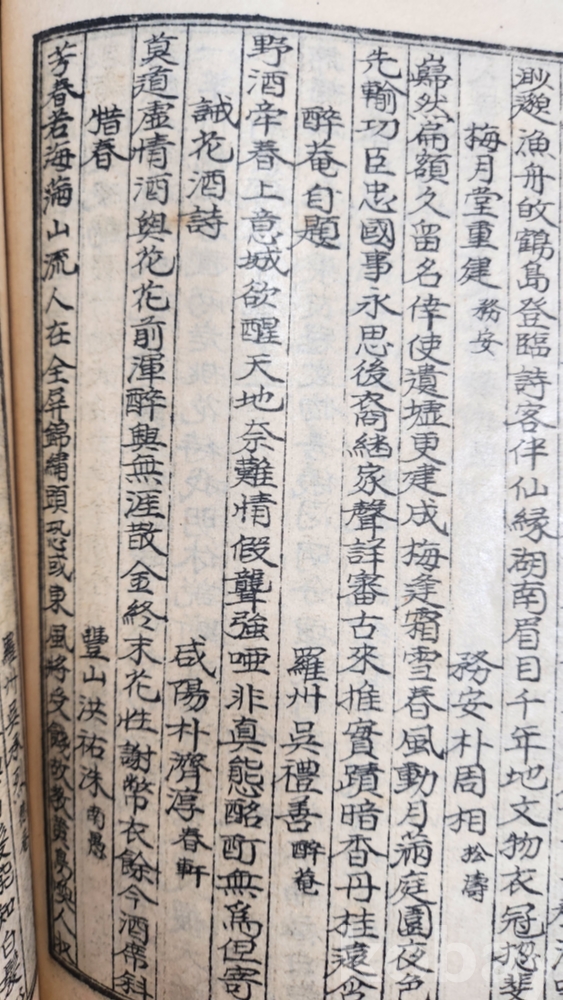 渺邈漁舟的鶴島登臨詩客伴仙緣湖南眉目千年地文物衣冠揔斐
梅月堂重建 務安 務安朴周相 松濤
巋然扁額久留名倖使遺墟更建成梅逢霜雪春風動月滿庭園夜色
先輸功臣忠國事永思後裔繼家聲詳審古來推實蹟暗香丹桂遠
醉菴自題 羅州吳禮善 醉菴
野酒牽春上意城欲醒天地奈難情假聾強啞非真態酩酊無爲但寄
誡花酒詩 咸陽朴濟淳 春軒
莫道虛情酒與花花前渾醉興無涯散金終末花性謝幣衣餘今酒席斜
惜春 豐山洪祐洙 南愚
芳春若海滿山流人在全屏錦繡頭恐或東風將受餘故教黃鳥
羅州吳